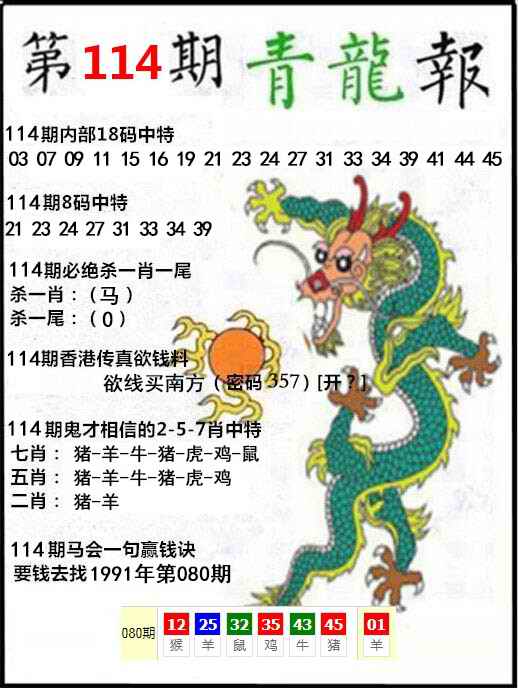 第114期青龍報
114期内部18码中特
03 07 09 11 15 16 19 21 23 24 27 31 33 34 39 41 44 45
114期8码中特
21 23 24 27 31 33 34 39
114期必绝杀一肖一尾
杀一肖：（马）
杀一尾：（0）
114期香港传真欲钱料
欲线买南方（密码357）[开？]
114期鬼才相信的2-5-7肖中特
七肖： 猪-羊-牛-猪-虎-鸡-鼠
五肖： 猪-羊-牛-猪-虎-鸡
二肖： 猪-羊
114期马会一句赢钱诀
要钱去找1991年第080期
080期 12 25 32 35 43 45 01
猴 羊 鼠 鸡 牛 猪 羊